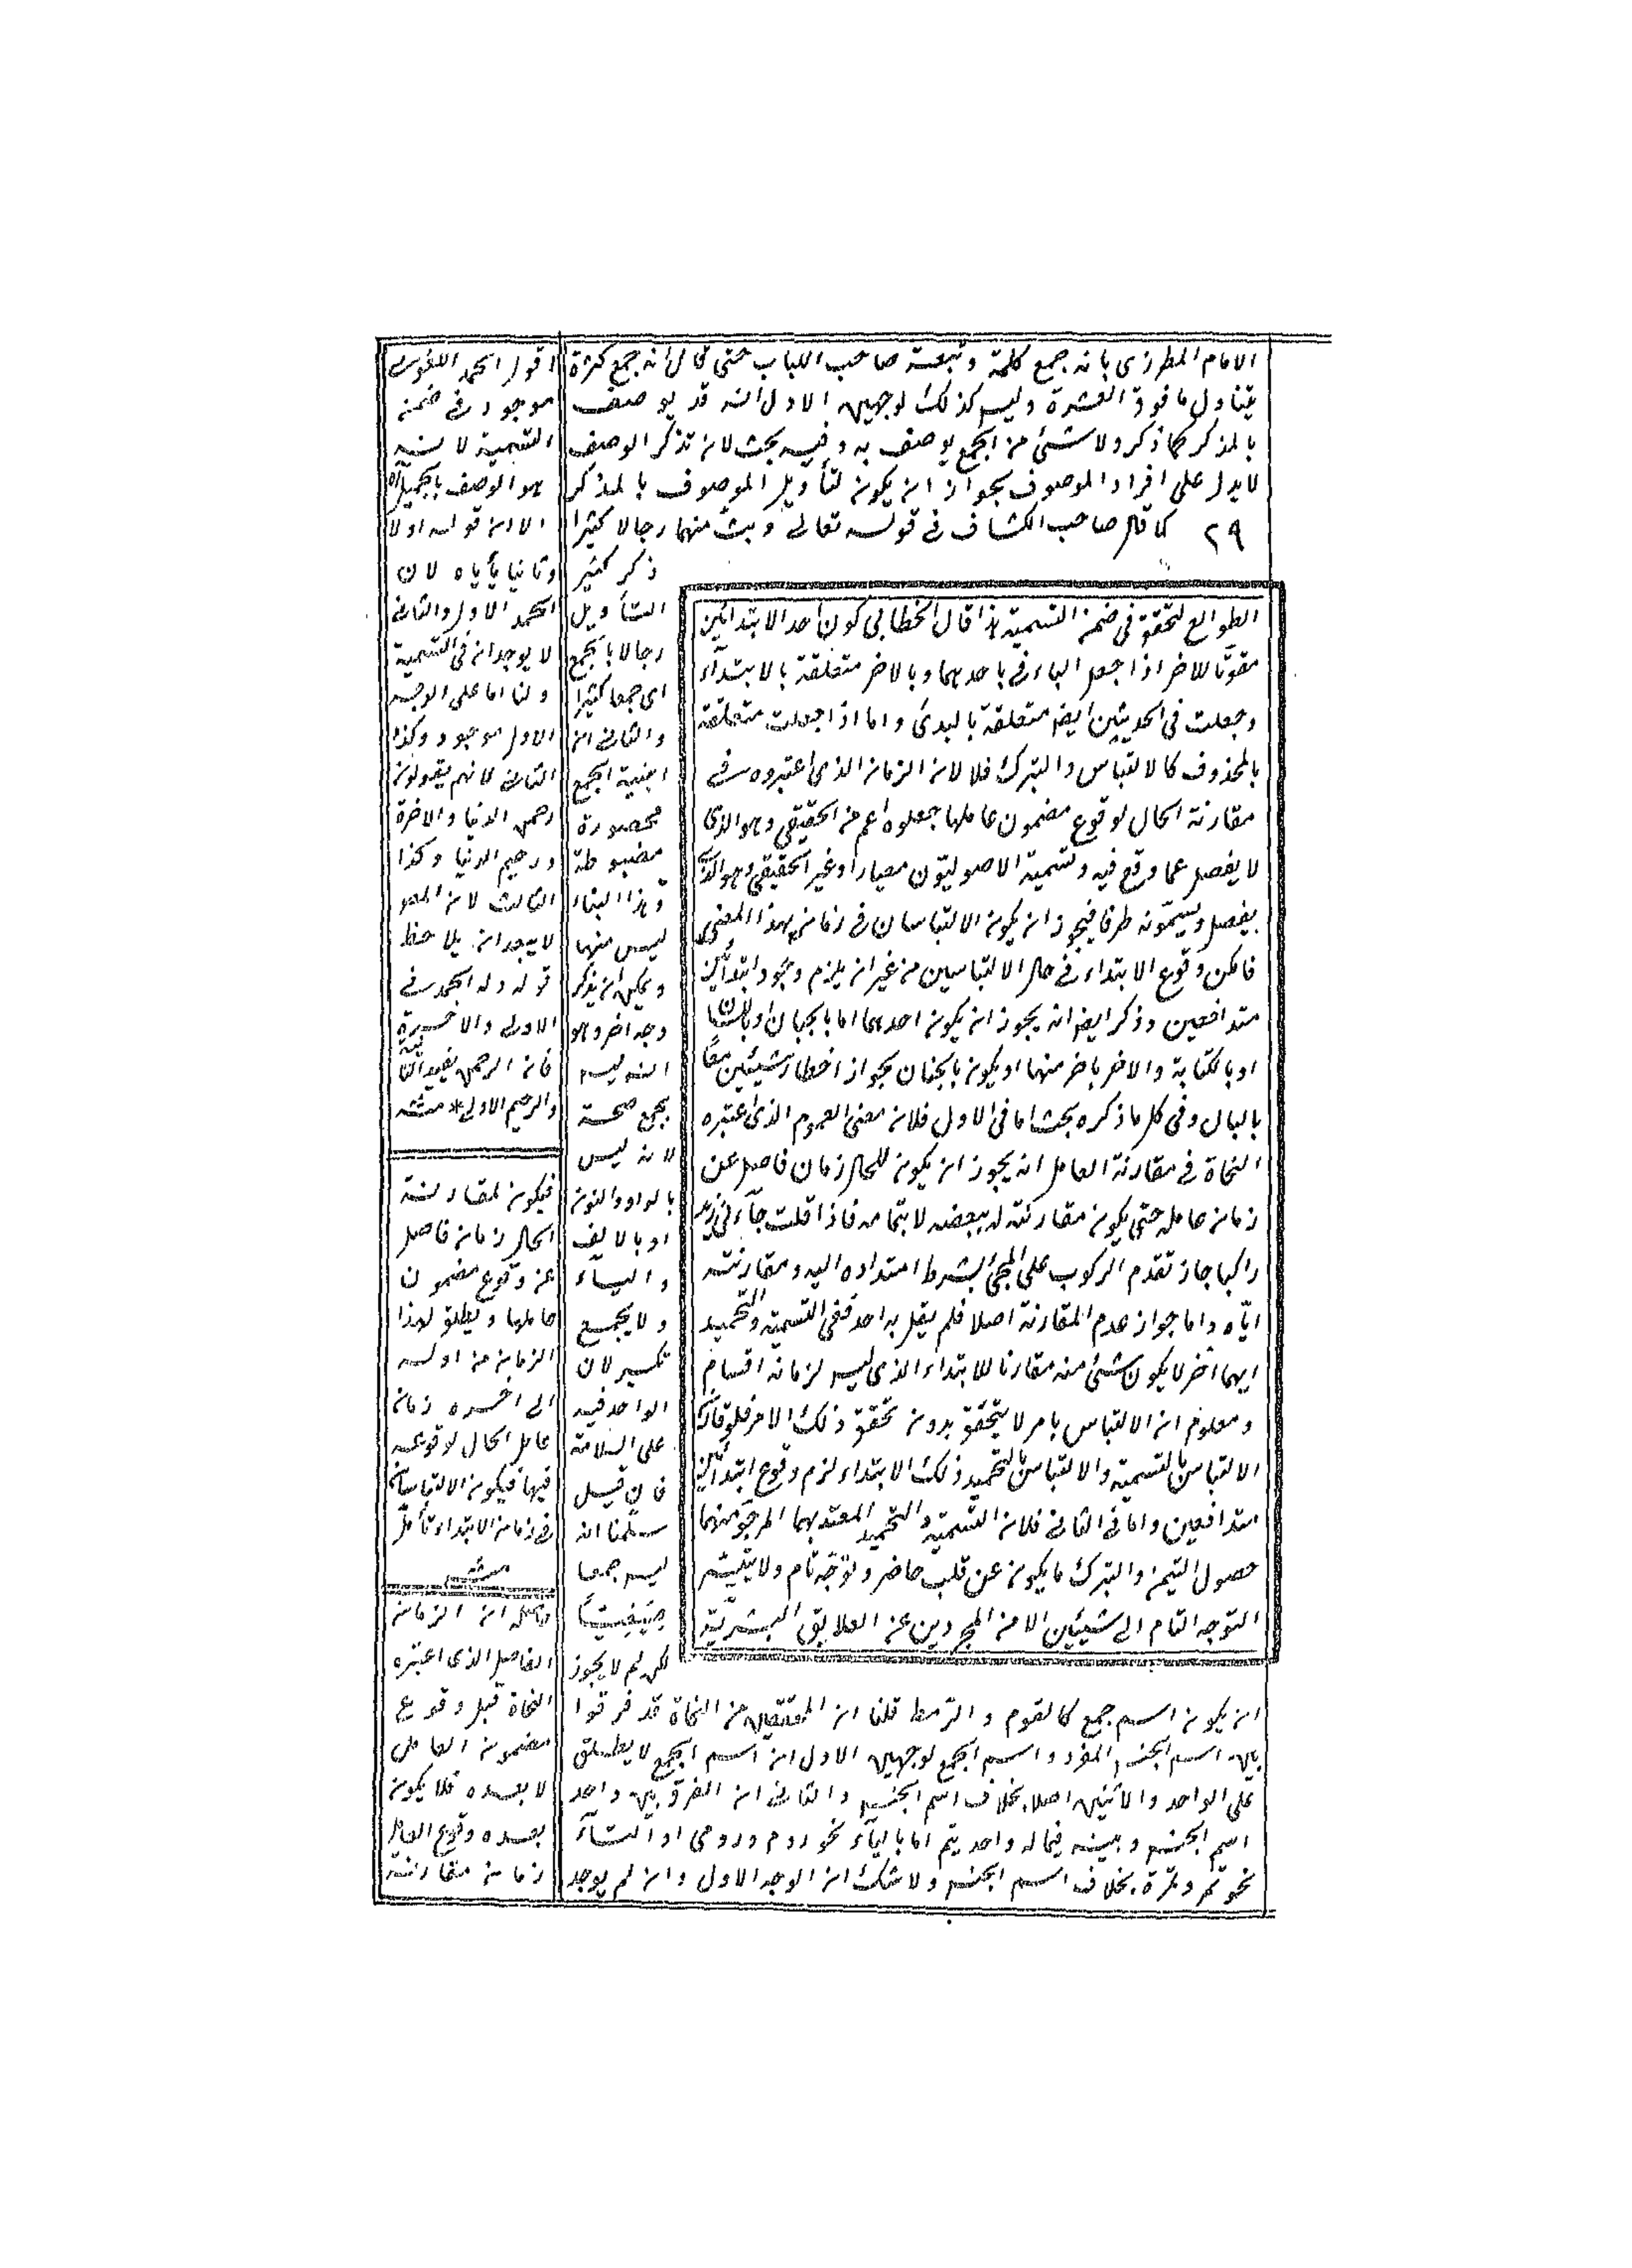 الامام المطرزى بانه جمع كلمة وتبعته صاحب اللباب حتى قال انه جمع كثرة
يتناول ما فوق العشرة وليس كذلك لوجهين الاول انه قد يوصف
بالمذكر كما ذكر ولا شئ من الجمع يوصف به وفيه بحث لان تذكر الوصف
لا يدل على افراد الموصوف بجواز ان يكون لتأويل الموصوف بالمذكر
٢٩ كما قال صاحب الكشاف فى قوله تعالى وبث منهما رجالا كثيرا
ذكر كثير
التأويل
رجالا بالجمع
اى جمعا كثيرا
والثانى ان
ابنية الجمع
محصورة
مضبوطة
وهذا البناء
ليس منها
ويمكن ان يذكر
وجه اخر وهو
انه ليس
بجمع صحة
لانه ليس
بالواو والنون
او بالالف
والياء
ولا بجمع
تكسير لان
الواحد فيه
على السلامة
فان قيل
سلمنا انه
ليس جمعا
لكن لم لا يجوز
ان يكون اسم جمع كالقوم والرهط قلنا ان المحققين من النحاة قد فرقوا
بين اسم الجنس المفرد واسم الجمع لوجهين الاول ان اسم الجمع لا يطلق
على الواحد والاثنين اصلا بخلاف اسم الجنس والثانى ان الفرق بين واحد
اسم الجنس وبينه فيما له واحد يتم اما بالياء نحو روم ورومى او التاء
نحو تمر وتمرة بخلاف اسم الجنس ولا شك ان الوجه الاول وان لم يوجد
الطوالع لتحققه فى ضمن التسمية قال الخطابى كون احد الابتدائين
مفوتا للاخر اذا جعل الباء فى باحدهما وبالاخر متعلقة بالابتداء
وجعلت فى الحديثين ايضا متعلقة بالبدئ واما اذا جعلت متعلقة
بالمحذوف كالالتباس والتبرك فلا لان الزمان الذى اعتبروه فى
مقارنة الحال لوقوع مضمون عاملها جعلوه اعم من الحقيقى وهو الذى
لا يفصل عما وقع فيه وتسمية الاصوليون معيارا وغير الحقيقى وهو الذى
يفصل ويسمونه ظرفا فيجوز ان يكون الالتباسان فى زمان بهذا المعنى
فامكن وقوع الابتداء فى حال الالتباسين من غير ان يلزم وجود ابتدائين
متدافعين وذكر ايضا انه يجوز ان يكون احدهما اما بالجنان او باللسان
او بالكتابة والاخر باخر منهما او يكون بالجنان بجواز اخطار شيئين معا
بالبال وفى كل ما ذكره بحث اما فى الاول فلان معنى العموم الذى اعتبره
النحاة فى مقارنة العامل انه يجوز ان يكون للحال زمان فاصل عن
زمان عامله حتى يكون مقارنته له ببعضه لا بتمامه فاذا قلت جاءنى زيد
راكبا جاز تقدم الركوب على المجئ بشرط امتداده اليه ومقارنته
اياه واما جواز عدم المقارنة اصلا فلم يقل به احد ففى التسمية والتحميد
ايهما اخر لا يكون شئ منه مقارنا للابتداء الذى ليس لزمانه اقسام
ومعلوم ان الالتباس بامر لا يتحقق بدون تحقق ذلك الامر فلو قارن
الالتباس بالتسمية والالتباس بالتحميد ذلك الابتداء لزم وقوع ابتدائين
متدافعين واما فى الثانى فلان التسمية والتحميد المعتد بهما المرجو منهما
حصول التيمن والتبرك ما يكون عن قلب حاضر وتوجه تام ولا يتيسر
التوجه التام الى شيئين الا من المجردين عن العلايق البشرية
اقول الحمد اللغوى
موجود فى ضمن
التسمية لا سيه
هو الوصف بالجميل
الا ان قوله اولا
وثانيا يأباه لان
الحمد الاول والثانى
لا يوجد ان فى التسمية
ولنا اما على الوجه
الاول موجود وكذا
الثانى لانهم يقولون
رحمن الدنيا والاخرة
ورحيم الدنيا وكذا
الثالث لان
لا يبعد ان يلاحظ
قوله وله الحمد فى
الاولى والاخرة
فان الرحمن يفيد الثانية
والرحيم الاولى * منه
فيكون لمقارنة
الحال زمان فاصل
عن وقوع مضمون
عاملها ويطلق لهذا
الزمان من اوله
الى اخره زمان
عامل الحال لوقوعه
فيها فيكون الالتباسان
فى زمان الابتداء تأمل
منه
حاصله ان الزمان
الفاصل الذى اعتبره
النحاة قبل وقوع
مضمون العامل
لا بعده فلا يكون
بعده وقوع العامل
زمان مقارنته